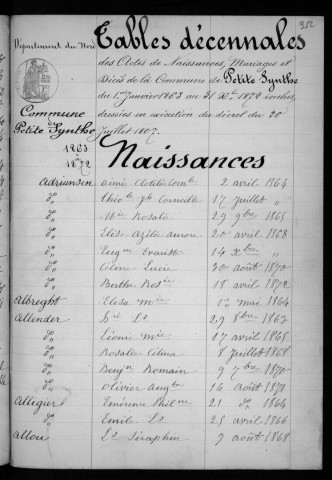 952
Département du Nord Tables décennales
des Actes de Naissances, Mariages et
Décès de la Commune de Petite Synthe
du 1er Janvier 1863 au 31 Xbre 1872 inclus,
Commune dressées en exécution du décret du 20
Petite Synthe Juillet 1807.
1863
1872
Naissances
Adriansen aimé 2 avril 1864
do Théole Jh Corneille 17 Juillet "
do Mie Rosalie 29 9bre 1865
do Elise Azélie aurore 20 avril 1868
do Eugne Evariste 14 Xbre "
do Céline Lucie 30 août 1870
do Berthe Rosine 18 avril 1872
Albreght Elisa Mie 1er mai 1864
Allender 29 8bre 1863
do Léonie Mie 17 avril 1865
do Rosalie Célina 8 Juillet 1868
do Benjn Romain 9 7bre 1870
do Olivier Augte 16 août 1872
Allegier Emérence 21 do 1864
do Emile Ls 25 avril 1866
Allou Ls Séraphin 7 août 1868